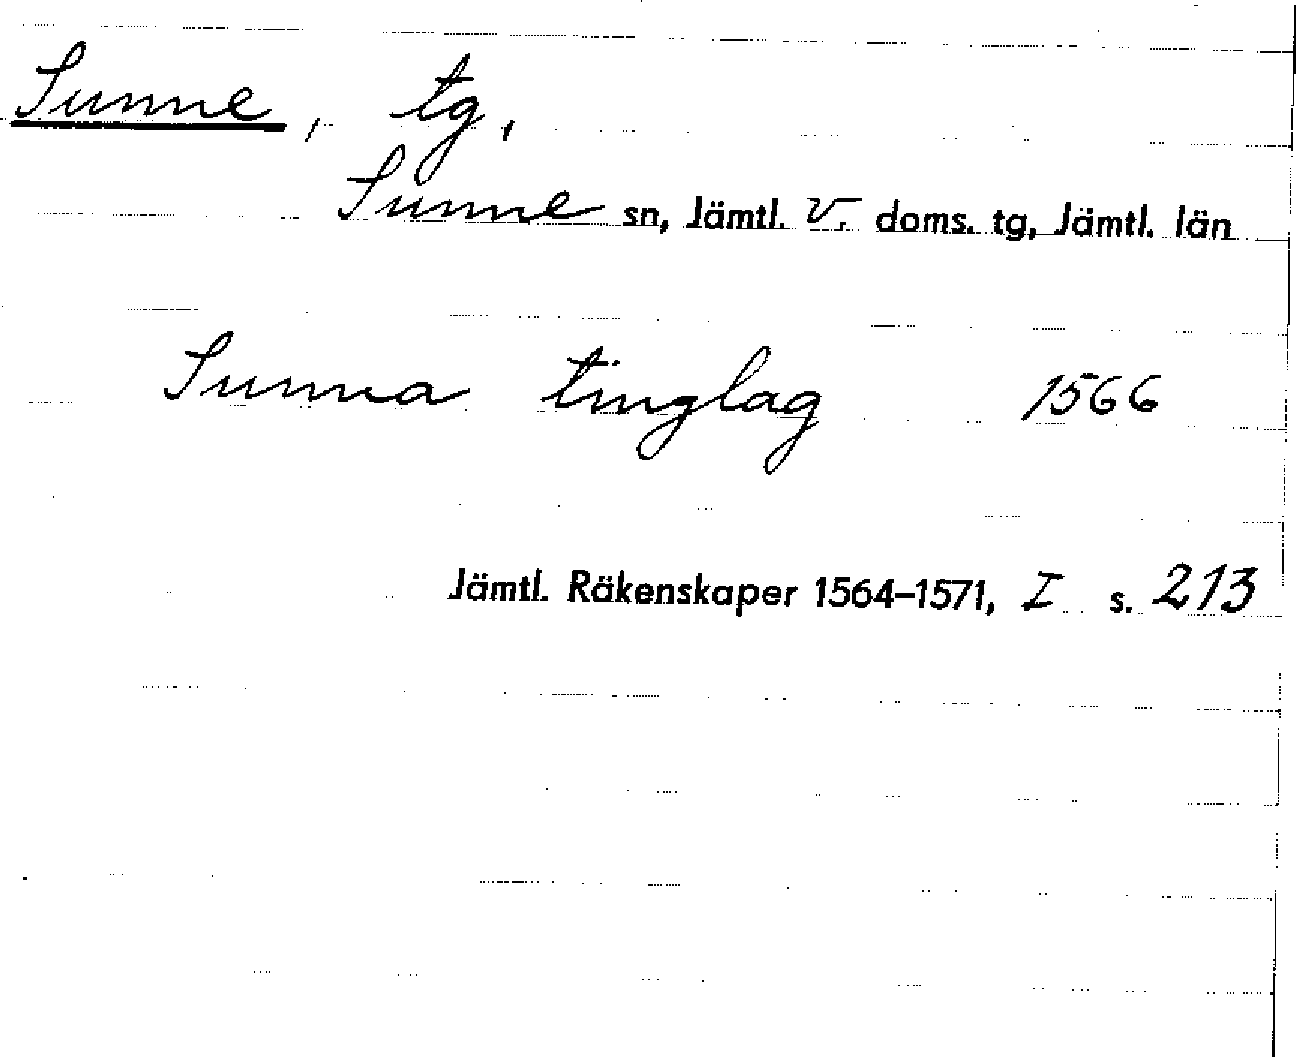 Sunne, tg,
Sunne sn, Jämtl. V. doms. tg, Jämtl. län
Sunna tinglag 1566
Jämtl. Räkenskaper 1564–1571, I s. 213